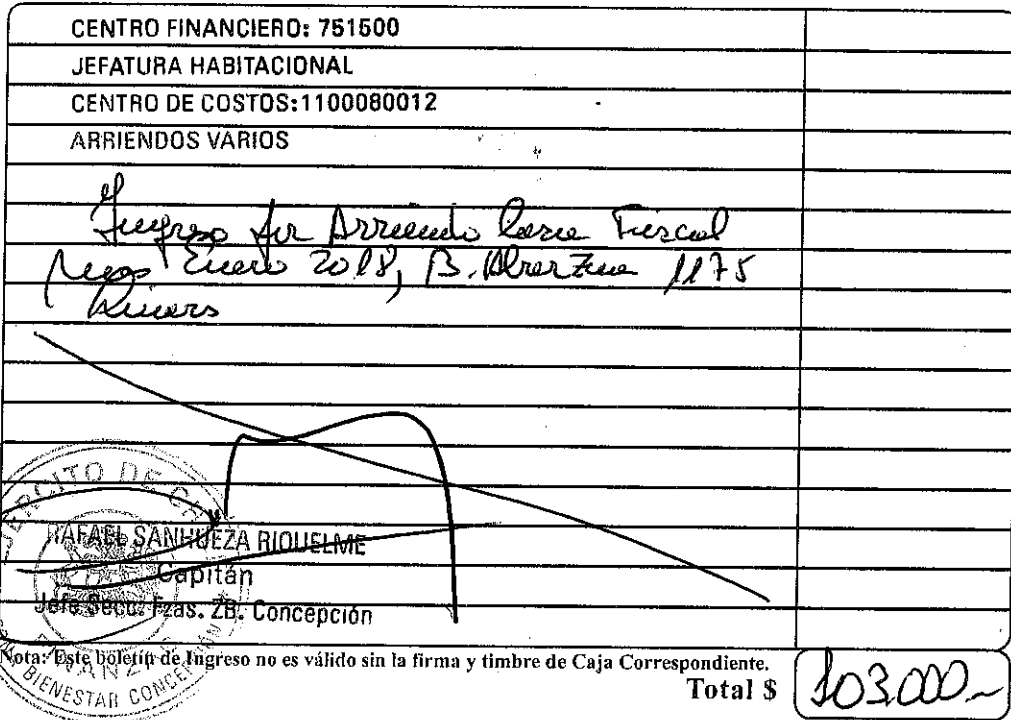 CENTRO FINANCIERO: 751500
JEFATURA HABITACIONAL
CENTRO DE COSTOS:1100080012
ARRIENDOS VARIOS
Ingreso por Arriendo Casa Fiscal
Mes Enero 2018, B. 1175
EJERCITO DE
RAFAEL SANHUEZA RIQUELME
Capitán
Jefe Secc. Fzas. ZB. Concepción
Nota: Este boletin de Ingreso no es válido sin la firma y timbre de Caja Correspondiente.
BIENESTAR
Total $ 103.000-